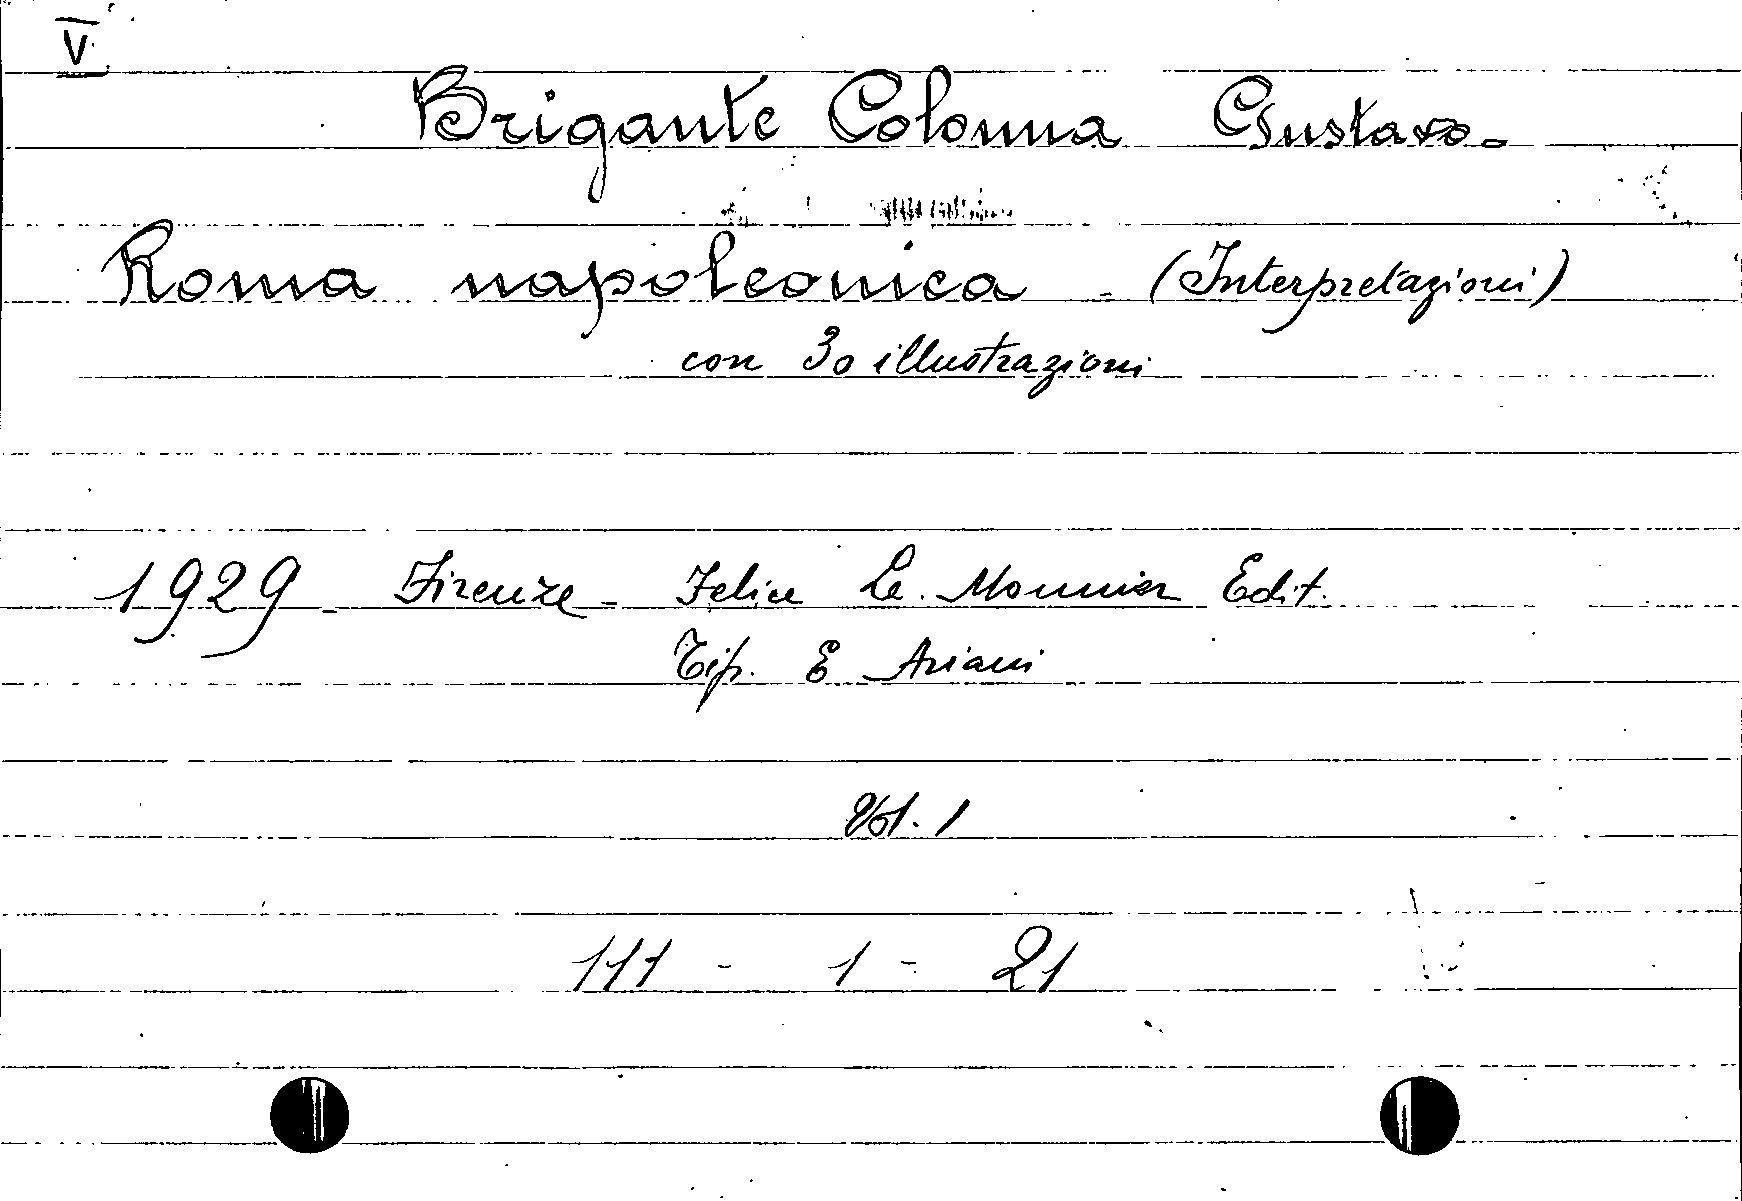 V
Brigante Colonna Gustavo.
Roma napoleonica - (Interpretazioni)
con 30 illustrazioni
1929 - Firenze - Felice Le Monnier Edit.
Tip. E Ariani
Vol. 1
111 - 1 - 21